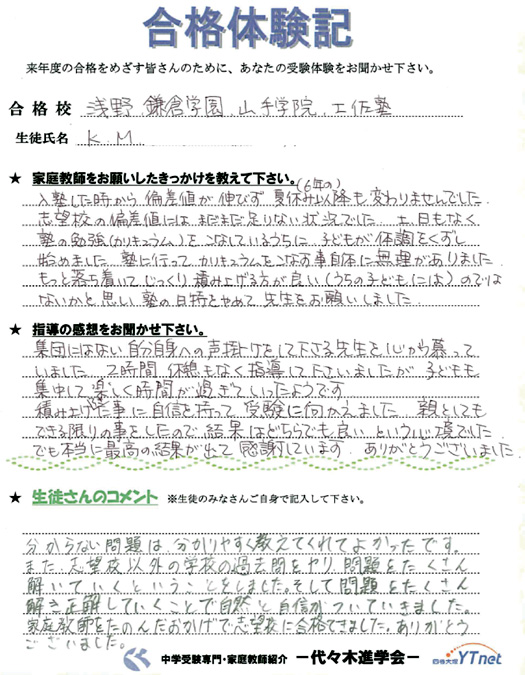 合格体験記
来年度の合格をめざす皆さんのために、あなたの受験体験をお聞かせ下さい。
合格校 浅野、鎌倉学園、山手学院、土佐塾
生徒氏名 K.M
★ 家庭教師をお願いしたきっかけを教えて下さい。
入塾した時から偏差値が伸びず(6年の)夏休み以降も変わりませんでした。
志望校の偏差値にはまだまだ足りない状況でした。土日もなく
塾の勉強(カリキュラム)をこなしているうちに子どもが体調をくずし
始めました。塾に行ってカリキュラムをこなす事自体に無理がありました
もっと落ち着いてじっくり積み上げる方が良い(うちの子どもには)のでは
ないかと思い塾の日特をやめて先生をお願いしました
★ 指導の感想をお聞かせ下さい。
集団にはない自分自身への声掛けをして下さる先生を心から慕って
いました。2時間休憩もなく指導して下さいましたが子どもも
集中して楽しく時間が過ぎていったようです
積み上げた事に自信を持って受験に向かえました 親としても
できる限りの事をしたので結果はどちらでも良いという心境でした
でも本当に最高の結果が出て感謝しています。ありがとうございました
★ 生徒さんのコメント ※生徒のみなさんご自身で記入して下さい。
分からない問題は、分かりやすく教えてくれてよかったです。
また、志望校以外の学校の過去問をやり、問題をたくさん
解いていくということをしました。そして問題をたくさん
解き正解していくことで自然と自信がついていきました。
家庭教師をたのんだおかげで志望校に合格できました。ありがとう
ございました。
中学受験専門・家庭教師紹介 ー代々木進学会ー 四谷大塚 YTnet